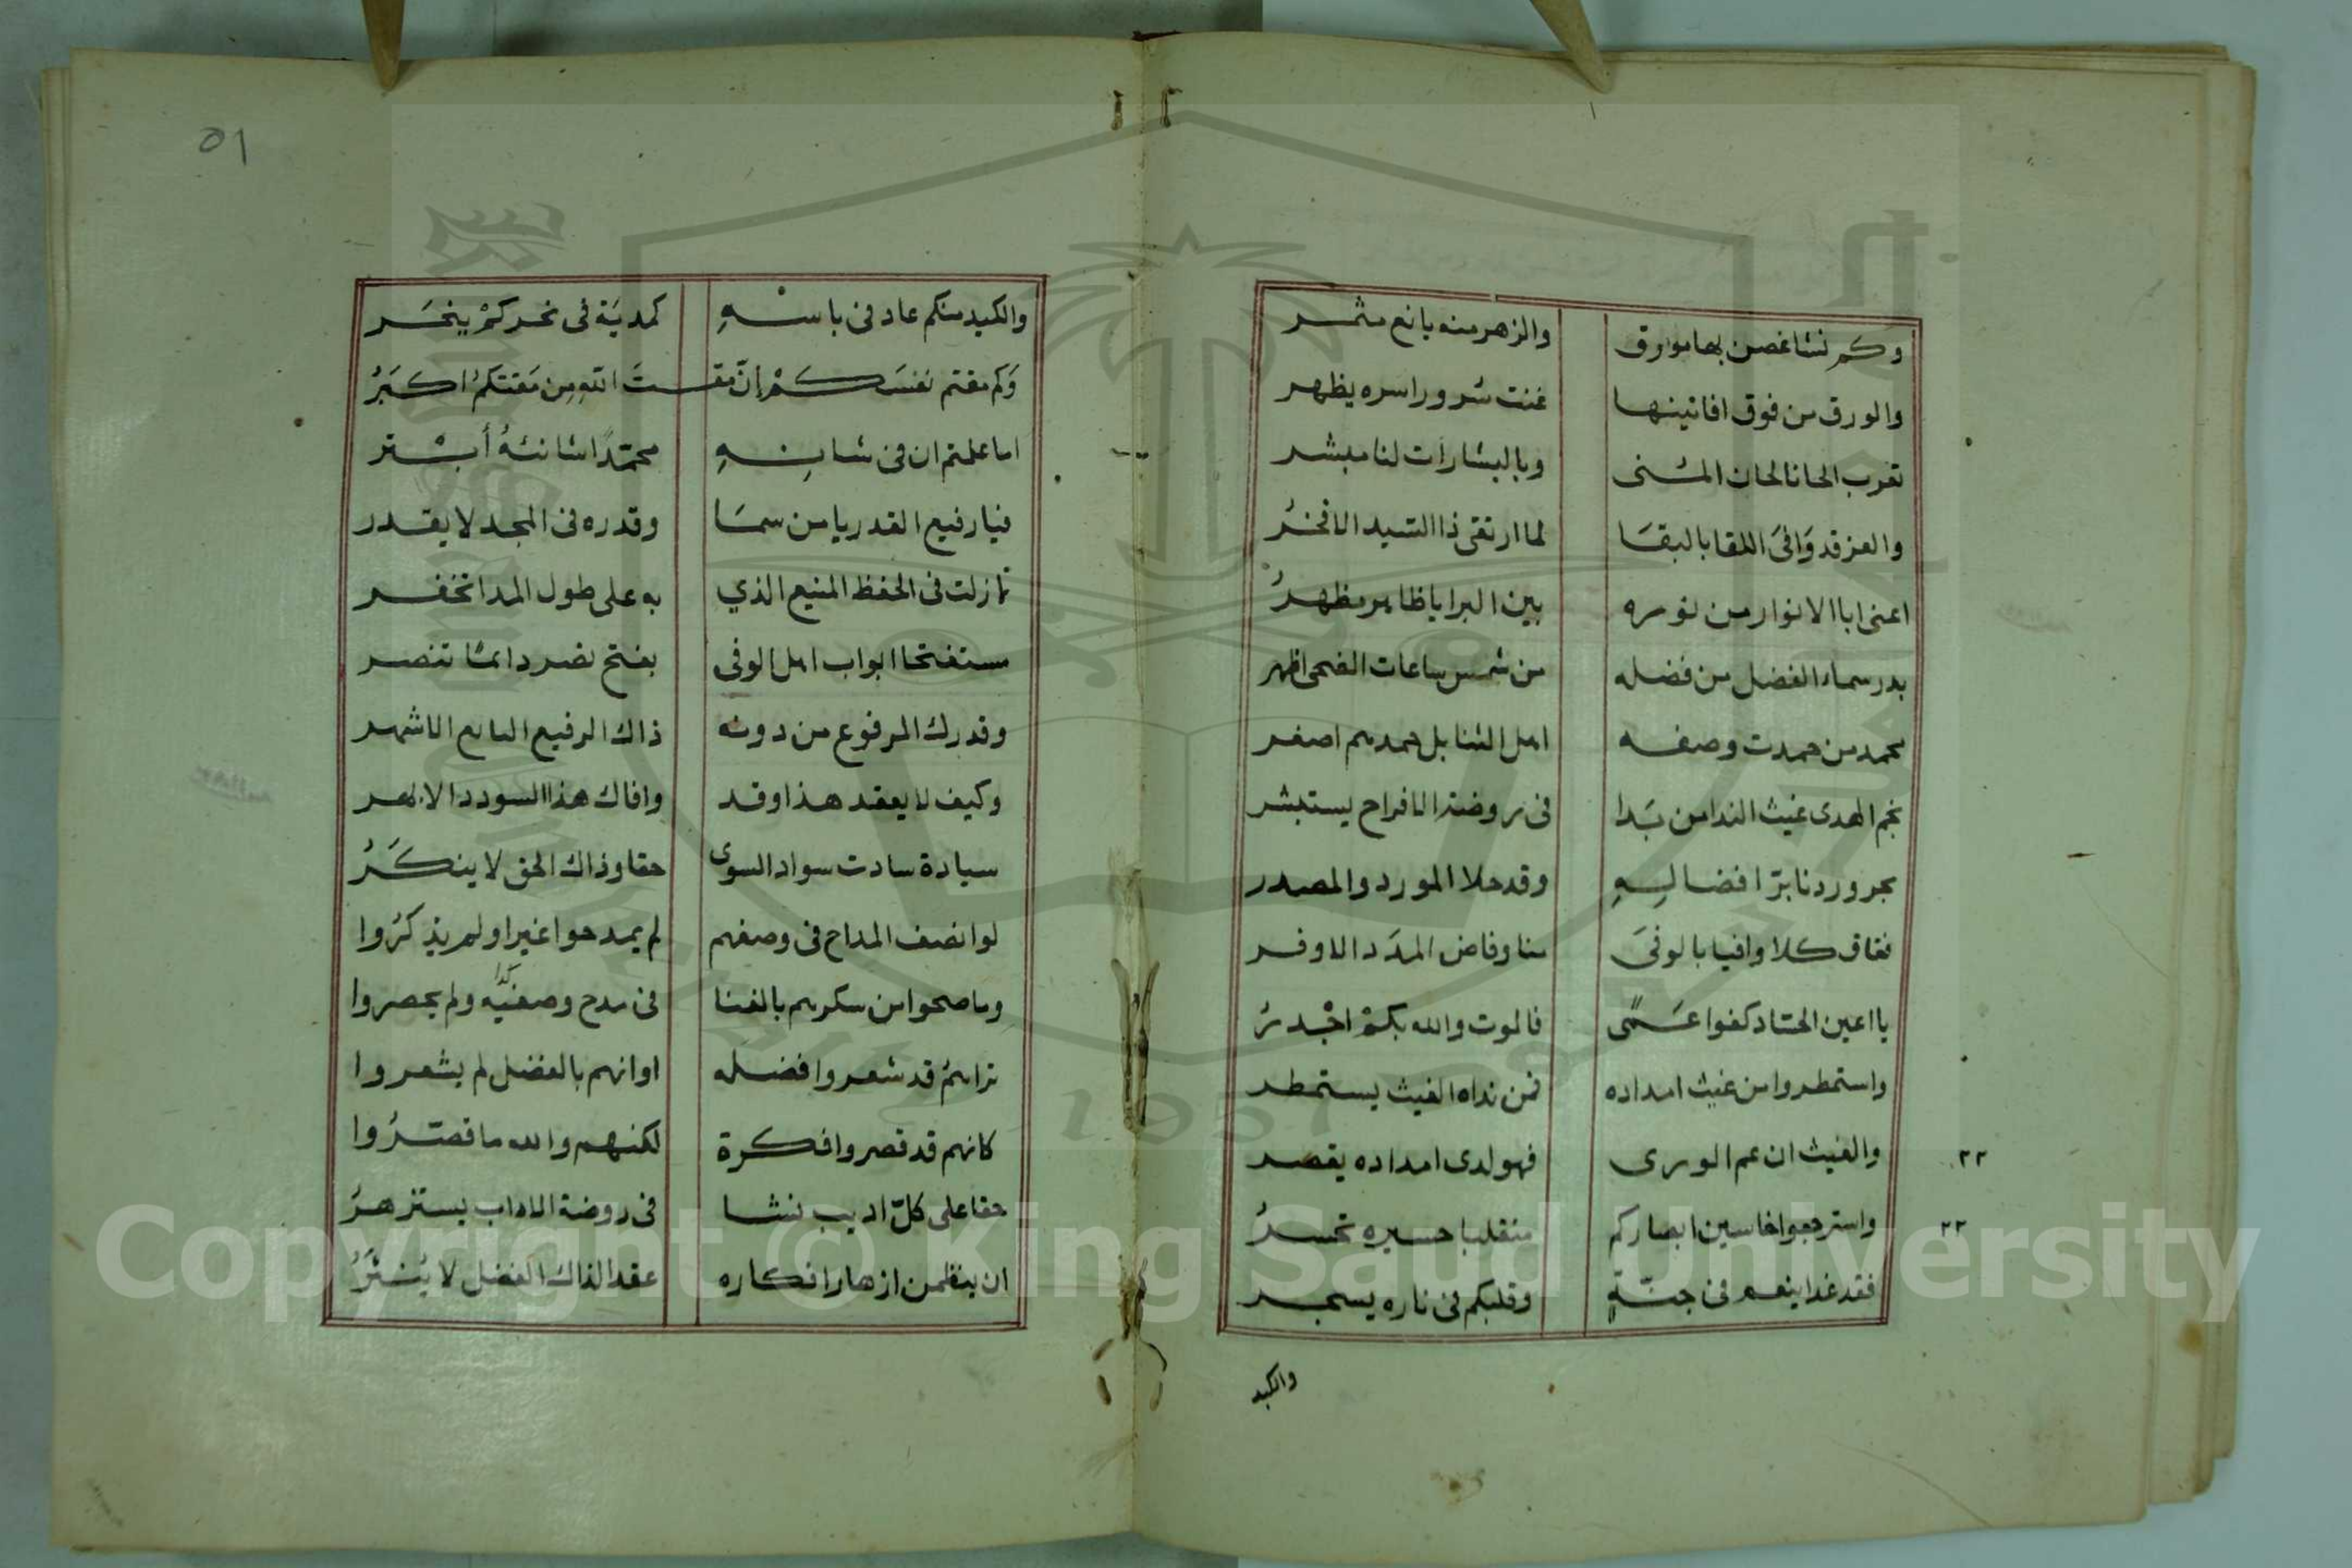 وكم نشا غصن بها مورق والزهر منه يانع مثمر
والورق من فوق افانينها غنت سرورا سره يظهر
تعرب الحانا لحان المنى وبالبشارات لنا مبشر
والعز قد وَافَى اللقا بالبقَا لما ارتقى ذا السيد الافخرُ
اعنى ابا الانوار من نوره بين البرايا ظاهر مظهرُ
بدر سماء الفضل من فضله من شمس ساعات الضحى اظهر
محمد من حمدت وصفه اهل الثنا بل حمدهم اصغر
نجم الهدى غيث الندا من بَدا فى روضة الافراح يستبشر
بحر وردنا برّ افضالِهِ وقد حلا المورد والمصدر
ففاق كلا وافيا بالوفَى منا وفاض المدَد الاوفر
يا اعين الحساد كفوا عَمًى فالموت والله بكمْ اجْدرُ
واستمطروا من غيث امداده فمن نداه الغيث يستمطر
والغيث ان عم الورى فهو لدى امداده يقصر ٢٢
واسترجعوا خاسين ابصاركم منقلبا حسيره تحسرُ ٢٢
فقد غدا ينعم فى جنّةٍ وقلبكم فى ناره يسجر
والكيد
٥١
والكيد منكم عاد فى باسهِ كمديَة فى نحركمْ ينحَر
وَكم مقتم نفسَكمْ إنّ مقتَ اللهِ مِن مَقتكمُ اكبَرُ
اما علمتم ان فى شانِهِ محمّدًا شانئهُ أبْتر
فيا رفيع القدر يا من سمَا وقدره فى المجد لا يقدر
لا زلت فى الحفظ المنيع الذي به على طول المدا تخفر
مستفتحا ابواب اهل الوفى بفتح نصر دائما تنصر
وقدرك المرفوع من دونه ذاك الرفيع الاشهر
وكيف لا يعقد هذا وقد وافاك هذا السودد الابهر
سيادة سادت سواد السوى حقا وذاك الحق لا ينكَرُ
لو انصف المداح فى وصفهم لم يمدحوا غيرا ولم يذكرُوا
وما صحوا من سكرهم بالغنا فى مدح وصفيّه كذا ولم يحصروا
تراهمُ قد شعروا فضله او انهم بالفضل لم يشعروا
كانهم قد قصروا فكرة لكنهم والله ما قصّرُوا
حقا على كلّ اديب نشا فى روضة الاداب يستزهرُ
ان ينظمن ازهار افكاره عقدا لذاك الفضل لا يُنثَرُ
Copyright © King Saud University
1957